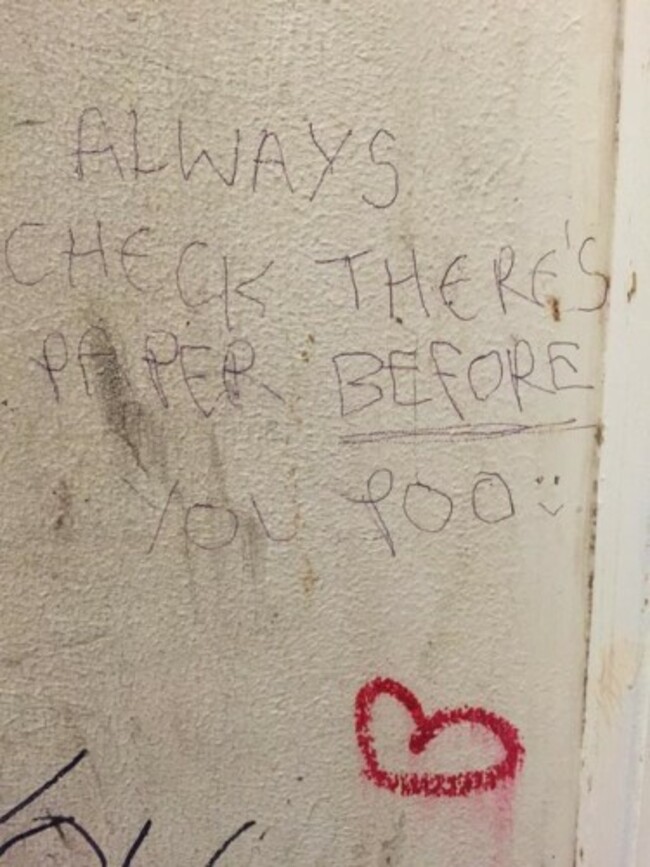 - ALWAYS
CHECK THERE'S
PAPER BEFORE
YOU POO :)